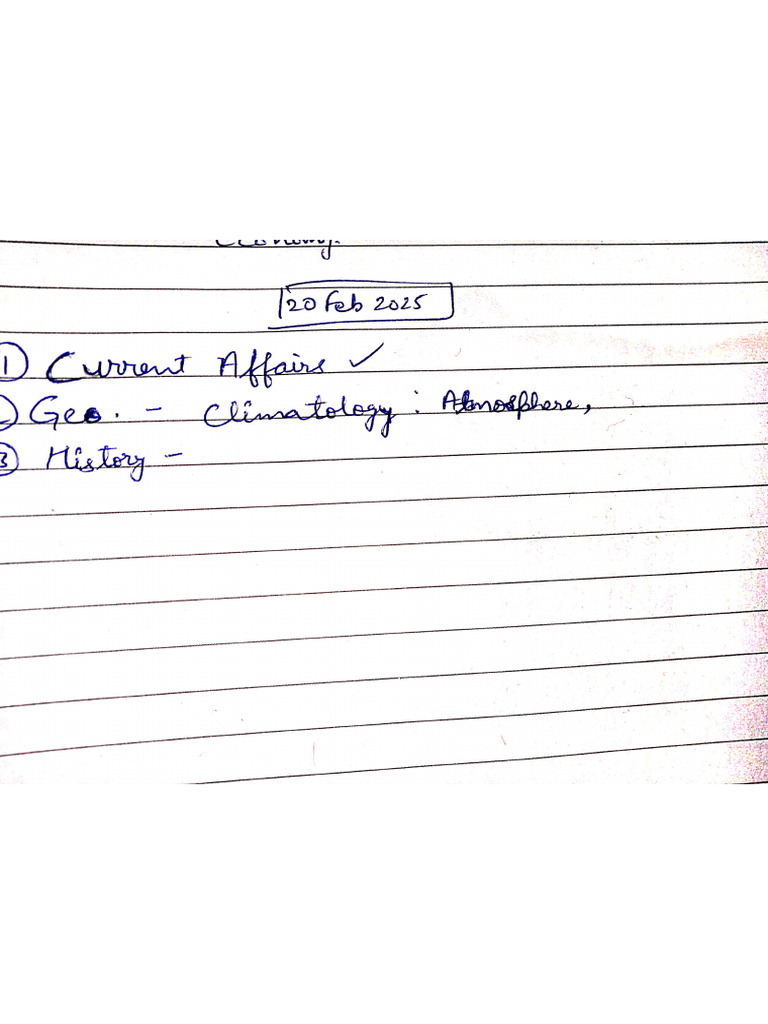 Economy.
20 Feb 2025
① Current Affairs ✓
② Geo. - Climatology : Atmosphere,
③ History -